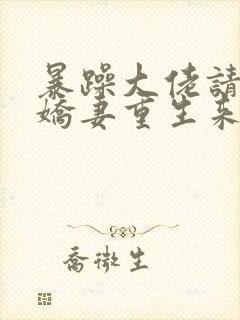 暴躁大佬請
嬌妻重生來
喬微生